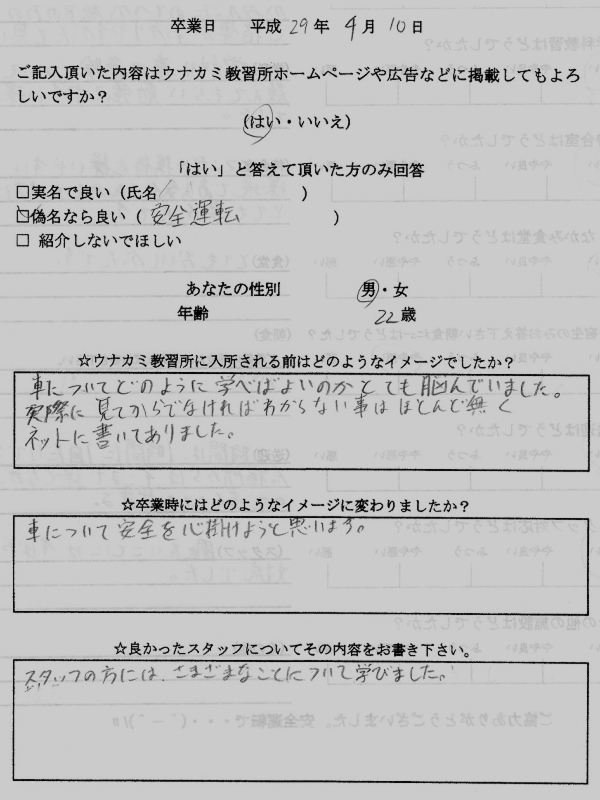 卒業日 平成 29 年 4 月 10 日
ご記入頂いた内容はウナカミ教習所ホームページや広告などに掲載してもよろ
しいですか？
(はい・いいえ)
「はい」と答えて頂いた方のみ回答
□実名で良い（氏名 ）
□偽名なら良い（ 安全運転 ）
□ 紹介しないでほしい
あなたの性別 男・女
年齢 22 歳
☆ウナカミ教習所に入所される前はどのようなイメージでしたか？
車についてどのように学べばよいのかとても脳んでいました。
実際に見てからでなければわからない事はほとんど無く
ネットに書いてありました。
☆卒業時にはどのようなイメージに変わりましたか？
車について安全を心掛けようと思います。
☆良かったスタッフについてその内容をお書き下さい。
スタッフの方には、さまざまなことについて学びました。